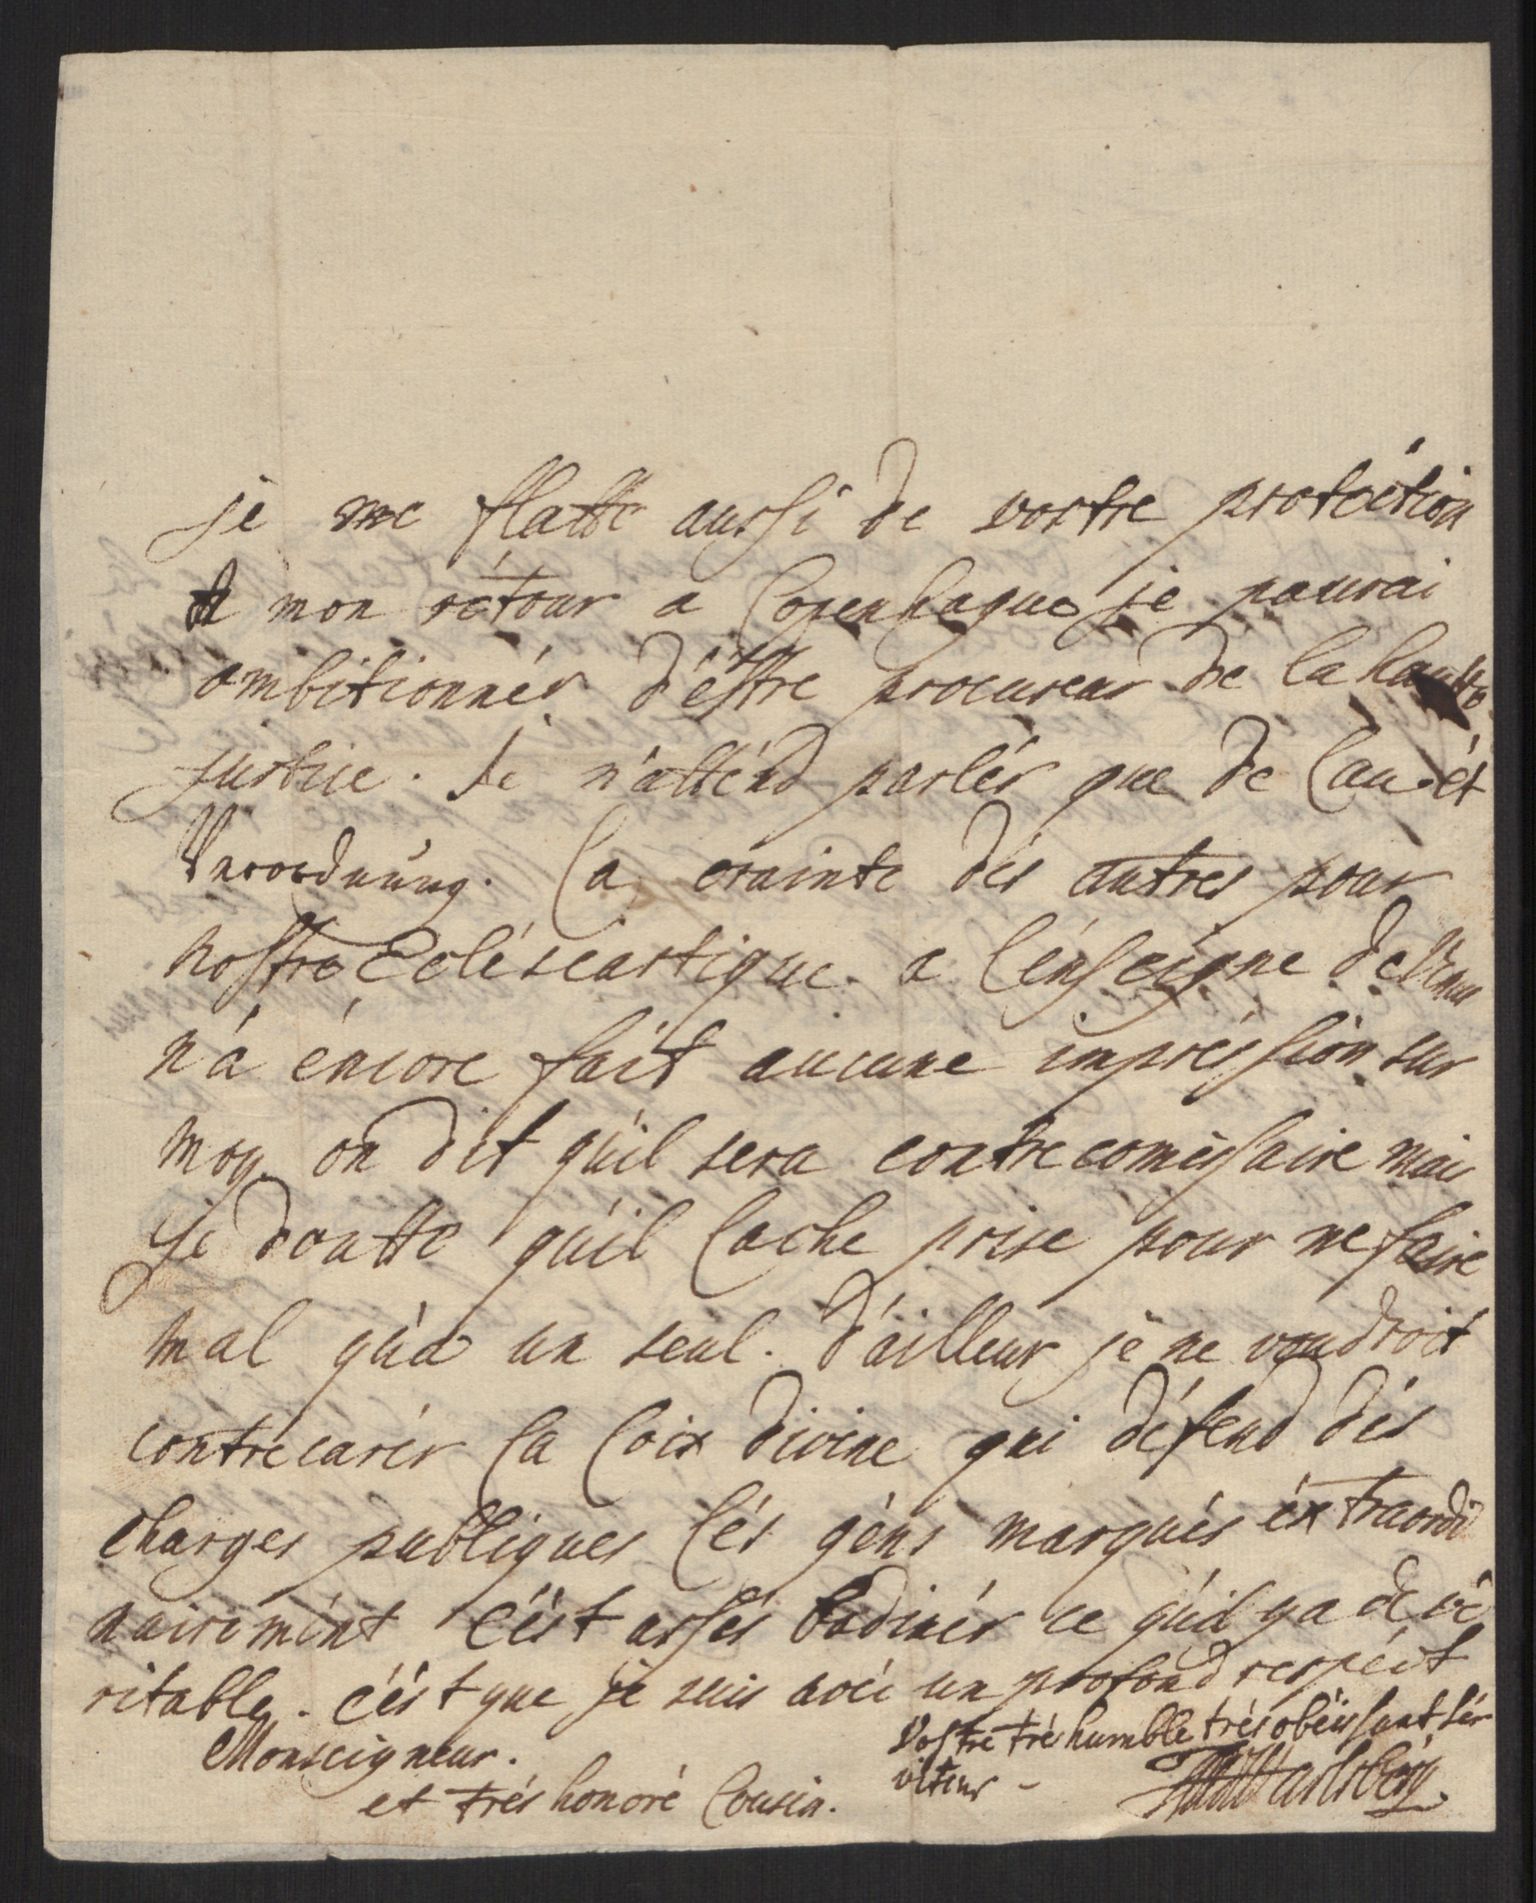 je me flatte aussi de vostre protéction
a mon rétour a Copenhague je pourai
ambitionnér d'éstre procureur de la haute
justice. Je n'atténd parlér que de Lau ét
Verordnung. La crainte dés autres pour
nostre Ecléseastique a l'énseigne de Venus
n'á éncore fait aucune impréssion sur
moy on dit qu'il sera contrecomissaire mais
je doutte qu'il lache prise pour ne faire
mal qu'a un seul. d'ailleur je ne voudroit
contrecarér la loix divine qui défend dés
charges publiques lés géns marqués éxtraordi
nairemént c'ést assés badinér ce qu'il ya de vé
ritable. c'ést que je suis avéc un profond respéct
Monseigneur.
et trés honoré Cousin.
Vostre trés humble trés obéissant sér
viteur